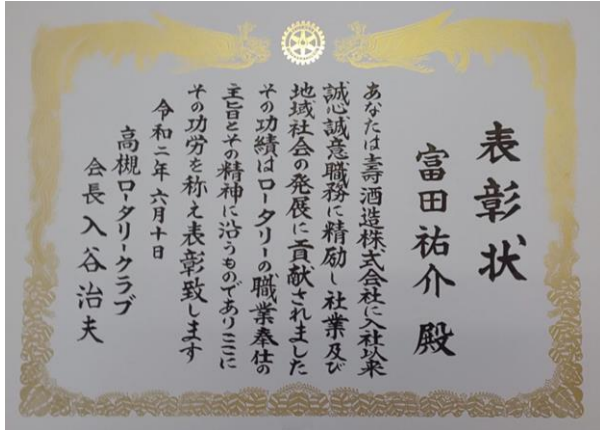 表彰状
富田祐介 殿
あなたは壽酒造株式会社に入社以来
誠心誠意職務に精励し社業及び
地域社会の発展に貢献されました
その功績はロータリーの職業奉仕の
主旨とその精神に沿うものでありここに
その功労を称え表彰致します
令和二年六月十日
高槻ロータリークラブ
会長 入谷治夫